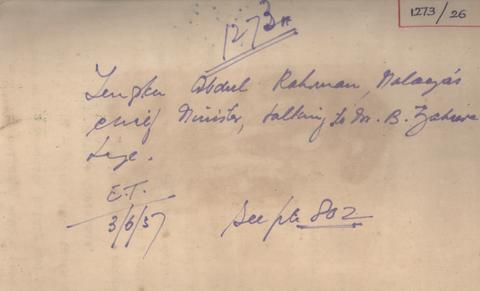 1273/26
1273A
Tengku Abdul Rahman, Malaya's
Chief Minister, talking to Mr. B. Zahiere
Lye.
E.T.
3/6/57
See ple 802